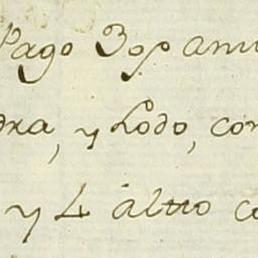 Pago 30p anu
dra, y Lodo, con
y 4 alttto c